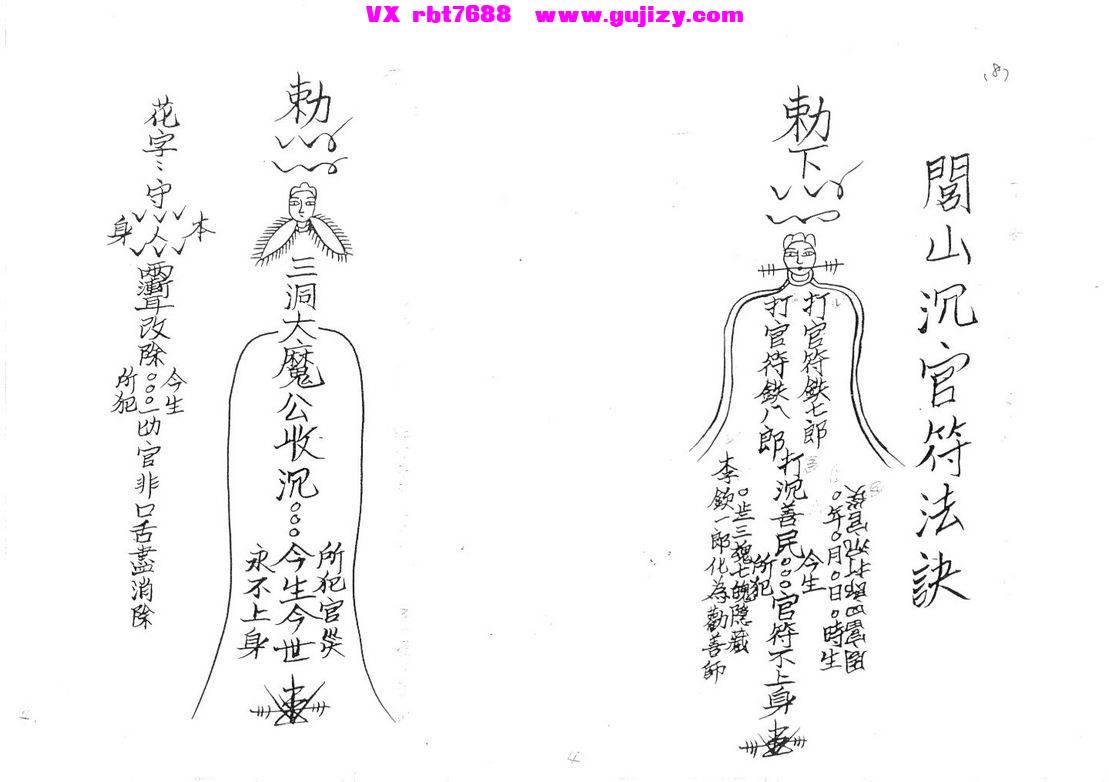 VX rbt7688 www.gujizy.com
(8)
閭山沉官符法訣
勅下
打官符鉄七郎
打官符鉄八郎
打沉善民○○○今生所犯官符不上身
○年○月○日○時生
○生三魂七魄隱藏
李欽一郎化為勸善師
勅
三洞大魔公收沉○○○今生今世
所犯官災
永不上身
花字〻守
本人身
改除○○○今生所犯一切官非口舌盡消除
4